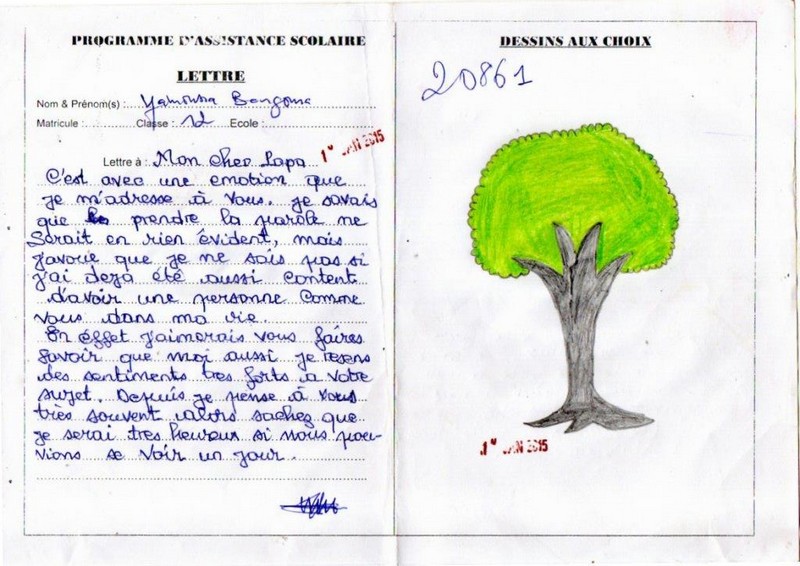 PROGRAMME D'ASSISTANCE SCOLAIRE
LETTRE
Nom & Prénom(s) : Yamoussa Bangoura
Matricule : Classe : 12 Ecole :
1er JAN 2015
Lettre à : Mon Cher Papa
C'est avec une emotion que
je m'adresse à vous. je savais
que prendre la parole ne
Serait en rien évident, mais
j'avoue que je ne sais pas si
j'ai deja été aussi content
d'avoir une personne Comme
Vous dans ma vie.
En effet j'aimerais vous faires
Savoir que moi aussi je resens
des sentiments tres forts a votre
sujet. Depuis je pense à vous
très souvent alors saches que
je serai tres heureux si nous pou-
vions se voir un jour.
DESSINS AUX CHOIX
20861
1er JAN 2015